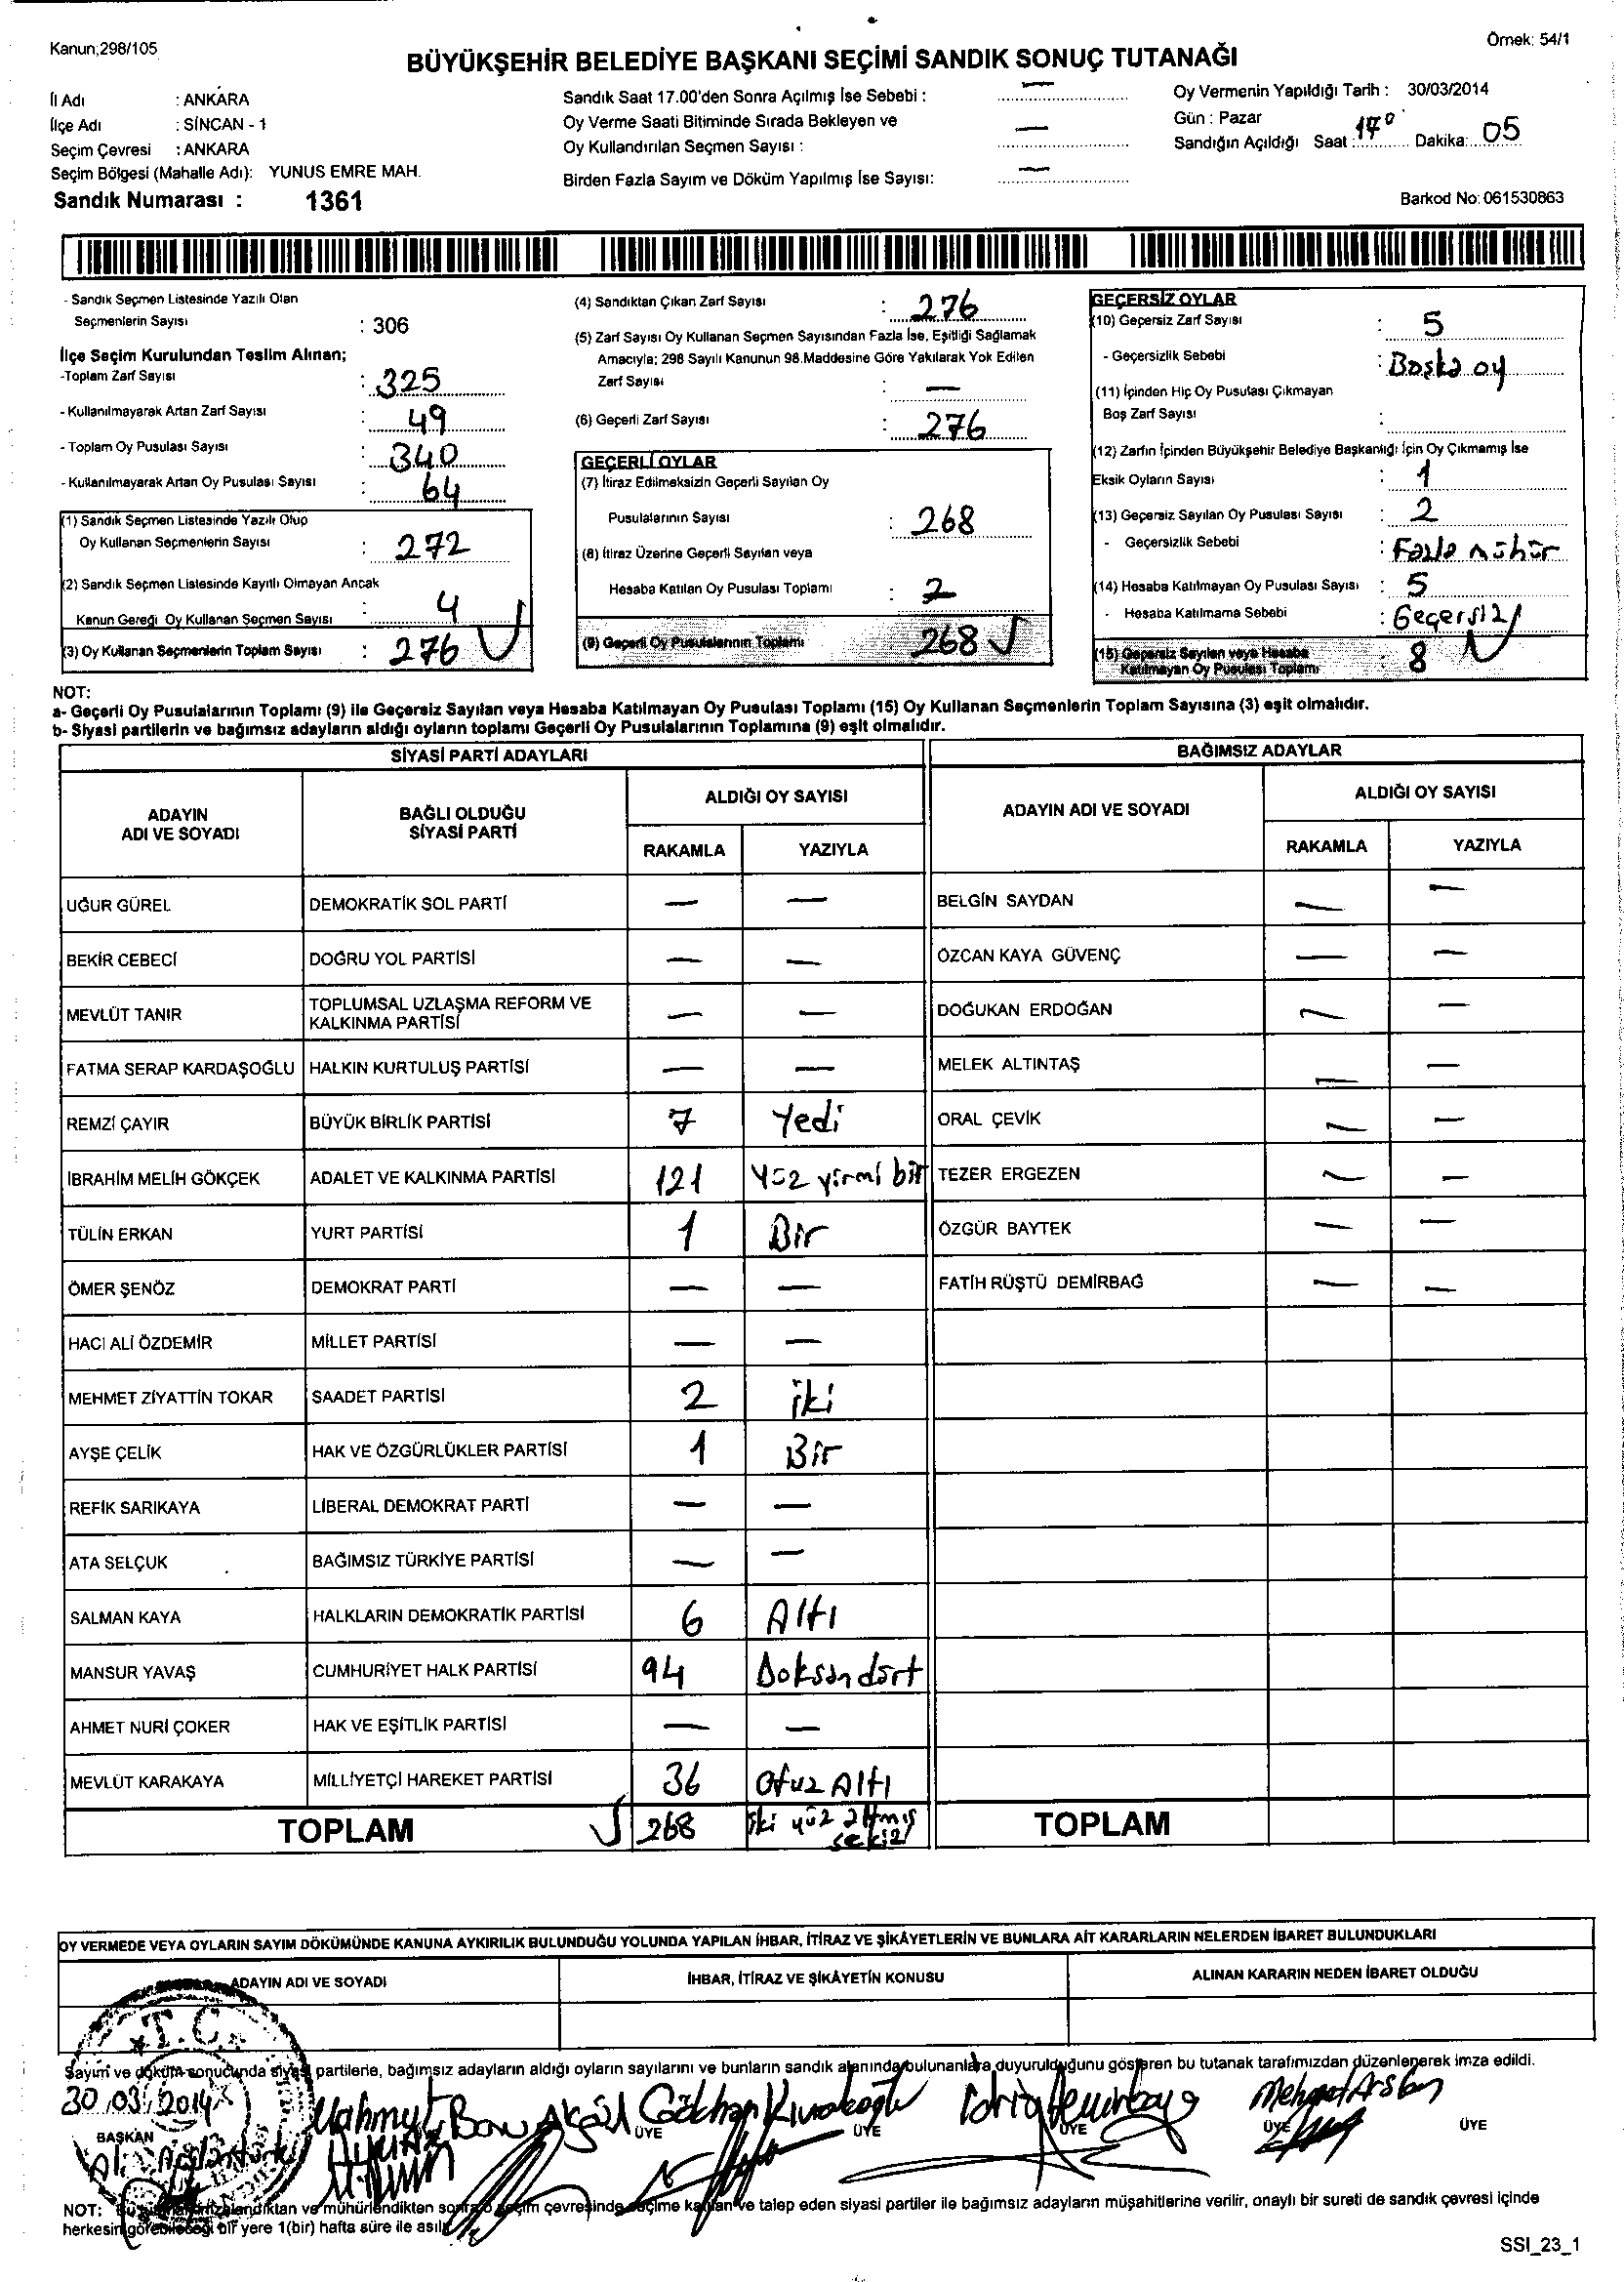 Kanun;298/105
Örnek: 54/1
BÜYÜKŞEHİR BELEDİYE BAŞKANI SEÇİMİ SANDIK SONUÇ TUTANAĞI
İl Adı : ANKARA
İlçe Adı : SİNCAN - 1
Seçim Çevresi : ANKARA
Seçim Bölgesi (Mahalle Adı): YUNUS EMRE MAH.
Sandık Numarası : 1361
Sandık Saat 17.00'den Sonra Açılmış İse Sebebi : —
Oy Verme Saati Bitiminde Sırada Bekleyen ve
Oy Kullandırılan Seçmen Sayısı : —
Birden Fazla Sayım ve Döküm Yapılmış İse Sayısı: —
Oy Vermenin Yapıldığı Tarih : 30/03/2014
Gün : Pazar
Sandığın Açıldığı Saat : 17⁰ Dakika: 05
Barkod No: 061530863
- Sandık Seçmen Listesinde Yazılı Olan
Seçmenlerin Sayısı : 306
İlçe Seçim Kurulundan Teslim Alınan;
-Toplam Zarf Sayısı : 325
- Kullanılmayarak Artan Zarf Sayısı : 49
- Toplam Oy Pusulası Sayısı : 340
- Kullanılmayarak Artan Oy Pusulası Sayısı : 64
(1) Sandık Seçmen Listesinde Yazılı Olup
Oy Kullanan Seçmenlerin Sayısı : 272
(2) Sandık Seçmen Listesinde Kayıtlı Olmayan Ancak
Kanun Gereği Oy Kullanan Seçmen Sayısı : 4
(3) Oy Kullanan Seçmenlerin Toplam Sayısı : 276
(4) Sandıktan Çıkan Zarf Sayısı : 276
(5) Zarf Sayısı Oy Kullanan Seçmen Sayısından Fazla İse, Eşitliği Sağlamak
Amacıyla; 298 Sayılı Kanunun 98.Maddesine Göre Yakılarak Yok Edilen
Zarf Sayısı : —
(6) Geçerli Zarf Sayısı : 276
GEÇERLİ OYLAR
(7) İtiraz Edilmeksizin Geçerli Sayılan Oy
Pusulalarının Sayısı : 268
(8) İtiraz Üzerine Geçerli Sayılan veya
Hesaba Katılan Oy Pusulası Toplamı : 2
(9) Geçerli Oy Pusulalarının Toplamı 268
GEÇERSİZ OYLAR
(10) Geçersiz Zarf Sayısı : 5
- Geçersizlik Sebebi : Başka oy
(11) İçinden Hiç Oy Pusulası Çıkmayan
Boş Zarf Sayısı :
(12) Zarfın İçinden Büyükşehir Belediye Başkanlığı İçin Oy Çıkmamış İse
Eksik Oyların Sayısı : 1
(13) Geçersiz Sayılan Oy Pusulası Sayısı : 2
- Geçersizlik Sebebi : Fazla mühür
(14) Hesaba Katılmayan Oy Pusulası Sayısı : 5
- Hesaba Katılmama Sebebi : Geçersiz
(15) Geçersiz Sayılan veya Hesaba
Katılmayan Oy Pusulası Toplamı : 8
NOT:
a- Geçerli Oy Pusulalarının Toplamı (9) ile Geçersiz Sayılan veya Hesaba Katılmayan Oy Pusulası Toplamı (15) Oy Kullanan Seçmenlerin Toplam Sayısına (3) eşit olmalıdır.
b- Siyasi partilerin ve bağımsız adayların aldığı oyların toplamı Geçerli Oy Pusulalarının Toplamına (9) eşit olmalıdır.
SİYASİ PARTİ ADAYLARI
BAĞIMSIZ ADAYLAR
ADAYIN
ADI VE SOYADI
BAĞLI OLDUĞU
SİYASİ PARTİ
ALDIĞI OY SAYISI
RAKAMLA YAZIYLA
ADAYIN ADI VE SOYADI
ALDIĞI OY SAYISI
RAKAMLA YAZIYLA
UĞUR GÜREL DEMOKRATİK SOL PARTİ — — BELGİN SAYDAN — —
BEKİR CEBECİ DOĞRU YOL PARTİSİ — — ÖZCAN KAYA GÜVENÇ — —
MEVLÜT TANIR TOPLUMSAL UZLAŞMA REFORM VE
KALKINMA PARTİSİ — — DOĞUKAN ERDOĞAN — —
FATMA SERAP KARDAŞOĞLU HALKIN KURTULUŞ PARTİSİ — — MELEK ALTINTAŞ — —
REMZİ ÇAYIR BÜYÜK BİRLİK PARTİSİ 7 Yedi ORAL ÇEVİK — —
İBRAHİM MELİH GÖKÇEK ADALET VE KALKINMA PARTİSİ 121 Yüz yirmi bir TEZER ERGEZEN — —
TÜLİN ERKAN YURT PARTİSİ 1 Bir ÖZGÜR BAYTEK — —
ÖMER ŞENÖZ DEMOKRAT PARTİ — — FATİH RÜŞTÜ DEMİRBAĞ — —
HACI ALİ ÖZDEMİR MİLLET PARTİSİ — —
MEHMET ZİYATTİN TOKAR SAADET PARTİSİ 2 iki
AYŞE ÇELİK HAK VE ÖZGÜRLÜKLER PARTİSİ 1 Bir
REFİK SARIKAYA LİBERAL DEMOKRAT PARTİ — —
ATA SELÇUK BAĞIMSIZ TÜRKİYE PARTİSİ — —
SALMAN KAYA HALKLARIN DEMOKRATİK PARTİSİ 6 Altı
MANSUR YAVAŞ CUMHURİYET HALK PARTİSİ 94 Doksan dört
AHMET NURİ ÇOKER HAK VE EŞİTLİK PARTİSİ — —
MEVLÜT KARAKAYA MİLLİYETÇİ HAREKET PARTİSİ 36 Otuz Altı
TOPLAM 268 iki yüz altmış
sekiz
TOPLAM
OY VERMEDE VEYA OYLARIN SAYIM DÖKÜMÜNDE KANUNA AYKIRILIK BULUNDUĞU YOLUNDA YAPILAN İHBAR, İTİRAZ VE ŞİKÂYETLERİN VE BUNLARA AİT KARARLARIN NELERDEN İBARET BULUNDUKLARI
ADAYIN ADI VE SOYADI İHBAR, İTİRAZ VE ŞİKÂYETİN KONUSU ALINAN KARARIN NEDEN İBARET OLDUĞU
T.C.
Sayım ve döküm sonucunda siyasi partilerle, bağımsız adayların aldığı oyların sayılarını ve bunların sandık alanında bulunanlara duyurulduğunu gösteren bu tutanak tarafımızdan düzenlenerek imza edildi.
30/03/2014
Mahmut Akgül Gökhan İdris Mehmet Arslan
BAŞKAN ÜYE ÜYE ÜYE ÜYE ÜYE
NOT: Bu sonra seçim çevresinde seçime katılan ve talep eden siyasi partiler ile bağımsız adayların müşahitlerine verilir, onaylı bir sureti de sandık çevresi içinde
herkesin görebileceği bir yere 1(bir) hafta süre ile asılır.
SSI_23_1